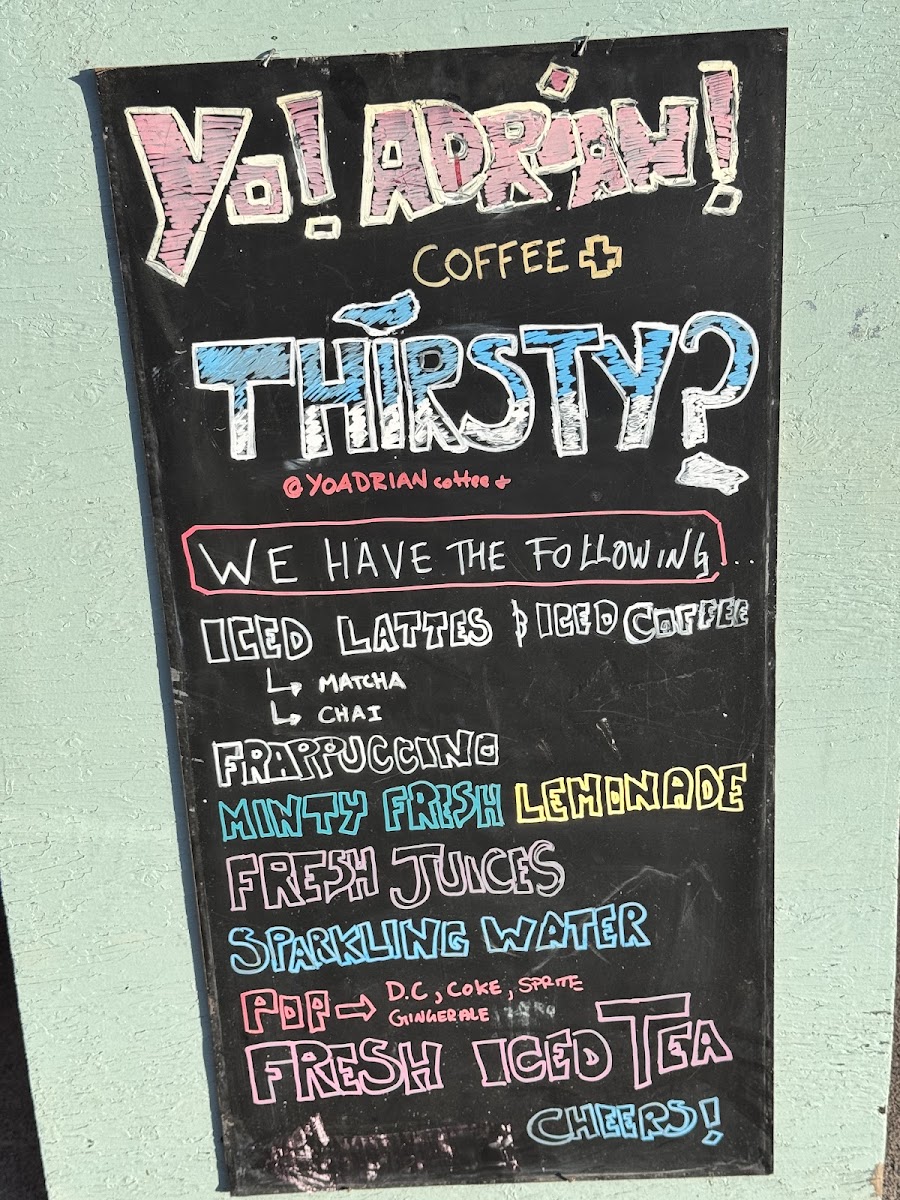 YO! ADRIAN!
COFFEE +
THIRSTY?
@YOADRIAN coffee +
WE HAVE THE FOLLOWING...
ICED LATTES & ICED COFFEE
↳ MATCHA
↳ CHAI
FRAPPUCCINO
MINTY FRESH LEMONADE
FRESH JUICES
SPARKLING WATER
POP → D.C, COKE, SPRITE
GINGERALE
FRESH ICED TEA
CHEERS!